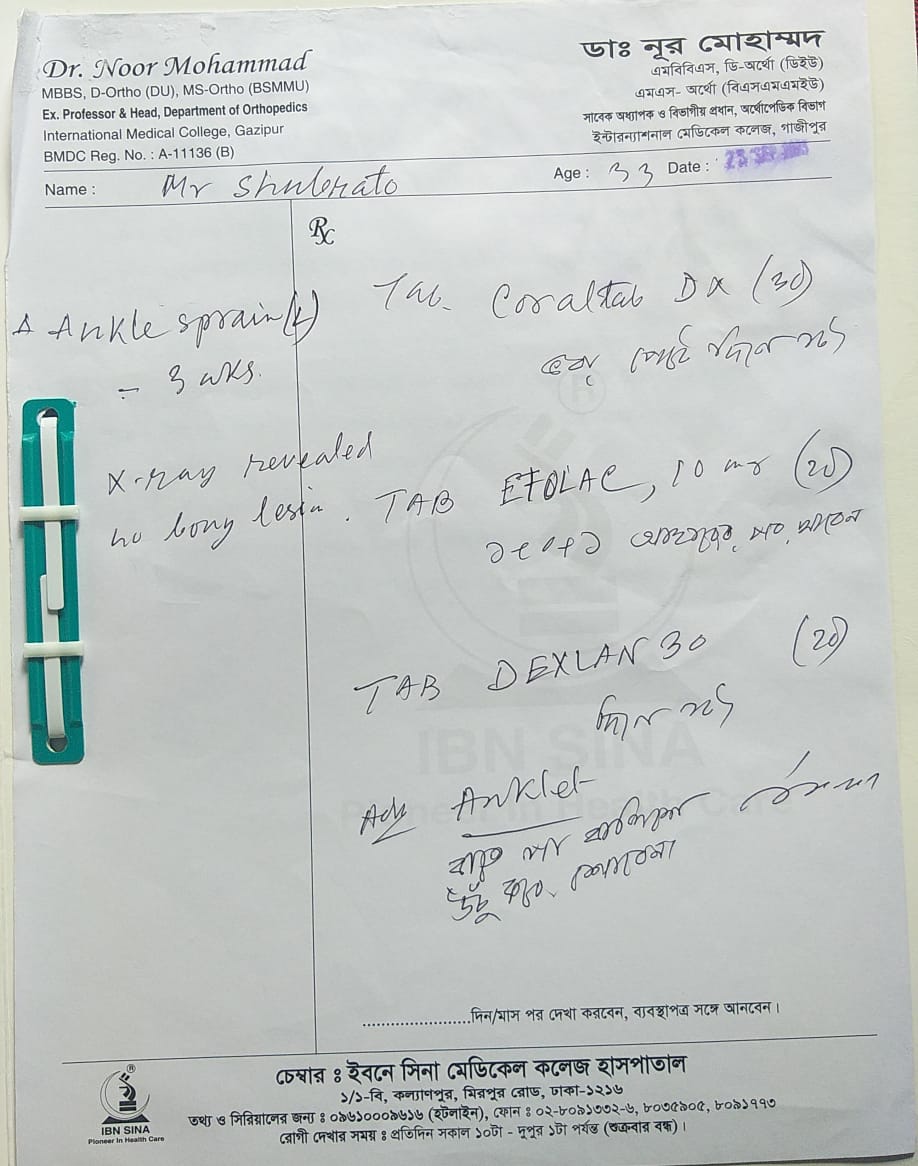 Dr. Noor Mohammad
MBBS, D-Ortho (DU), MS-Ortho (BSMMU)
Ex. Professor & Head, Department of Orthopedics
International Medical College, Gazipur
BMDC Reg. No. : A-11136 (B)
ডাঃ নূর মোহাম্মদ
এমবিবিএস, ডি-অর্থো (ডিইউ)
এমএস- অর্থো (বিএসএমএমইউ)
সাবেক অধ্যাপক ও বিভাগীয় প্রধান, অর্থোপেডিক বিভাগ
ইন্টারন্যাশনাল মেডিকেল কলেজ, গাজীপুর
Name : Mr Shubrato Age : 33 Date : 23 SEP
Rx
Δ Ankle sprain
- 3 wks.
X-ray revealed
no bony lesin.
Tab. Coraltab DX (30)
TAB ETOLAC, 10 mg (20)
১+০+১
TAB DEXLAN 30 (20)
Adv Anklet
উঁচু করে
IBN SINA
Pioneer in Health Care
....................দিন/মাস পর দেখা করবেন, ব্যবস্থাপত্র সঙ্গে আনবেন।
IBN SINA
Pioneer in Health Care
চেম্বার : ইবনে সিনা মেডিকেল কলেজ হাসপাতাল
১/১-বি, কল্যাণপুর, মিরপুর রোড, ঢাকা-১২১৬
তথ্য ও সিরিয়ালের জন্য : ০৯৬১০০০৯৬১৬ (হটলাইন), ফোন : ০২-৮০৯১৩৩২-৬, ৮০৩৫৯০৫, ৮০৯১৭৭৩
রোগী দেখার সময় : প্রতিদিন সকাল ১০টা - দুপুর ১টা পর্যন্ত (শুক্রবার বন্ধ)।